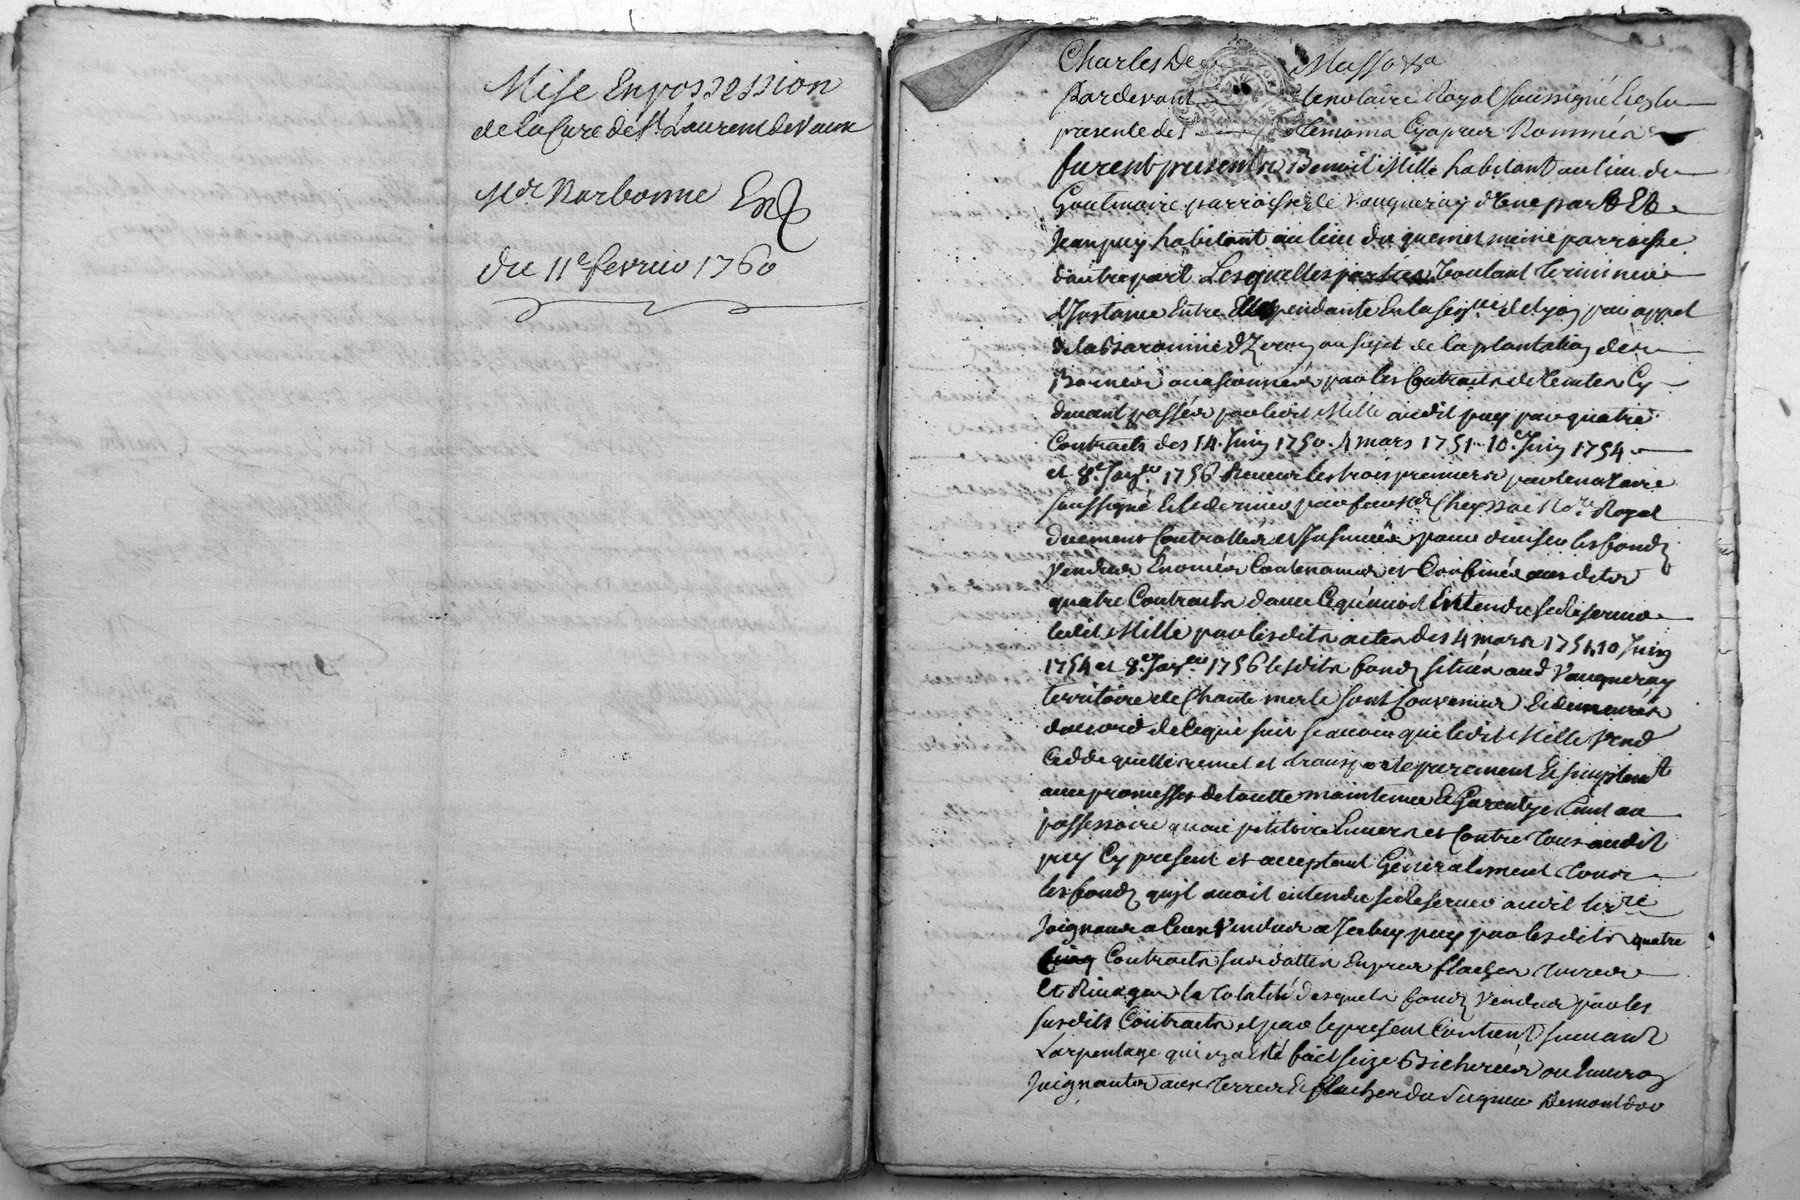 Mise Enpossession
de la Cure de St Laurent de Vaux
Mr Narbonne
du 11e fevrier 1760
Charles De Masso &a
Pardevant le notaire Royal soussigné Et en la
presence des temoins Cy apres Nommés
furent presents Benoit Mille habitant au lieu de
Goutmoire parroisse de Vaugneray d'Une part Et
Jean puy habitant au lieu du meme parroisse
d'autre part Lesquelles parties voulant terminer
L'Instance Entre Elles pendante En la de Lyon par appel
de la Baronnie d'Yzeron au sujet de la plantation des
Bornes occasionnées par les Contracts de Ventes Cy
devant passés par ledit Mille audit puy par quatre
Contracts des 14 Juin 1750. 4 mars 1751. 10e Juin 1754
et 8e Janvr 1756 Receus les trois premiers par le notaire
soussigné Et le dernier par feu Mr Cheyssac Nore Royal
duement Controllés et Insinués pour diviser les fonds
vendus Enoncés Contenances et Confinés aux dits
quatre Contracts d'avec Ce qu'avoit Entendu se Reserver
ledit Mille par lesdits actes des 4 mars 1751, 10 Juin
1754 et 8e Janvier 1756 lesdits fonds situés aud Vaugneray
territoire de Chante merle sont Convenus Et demeurés
daccord de Ce qui suit scavoir que ledit Mille Vend
Cedde quitte remet et transporte purement Et simplemt
avec promesses de toutte maintenue Et Garentye tant au
possessoire qu'au petitoire Envers et Contre tous audit
puy Cy present et acceptant Generalement tous
les fonds quil avoit entendu se Reserver audit terre
Joignants a Ceux Vendus a Icelluy puy par lesdits quatre
Contracts sus dattes En pres flaches terres
Et Rivages la totalité desquels fonds Vendus par les
susdits Contracts et par le present Contient suivant
L'arpentage qui en a eté fait seize Bicherées ou Environ
Joignantes aux terres Et flaches du Seigneur Demontdor